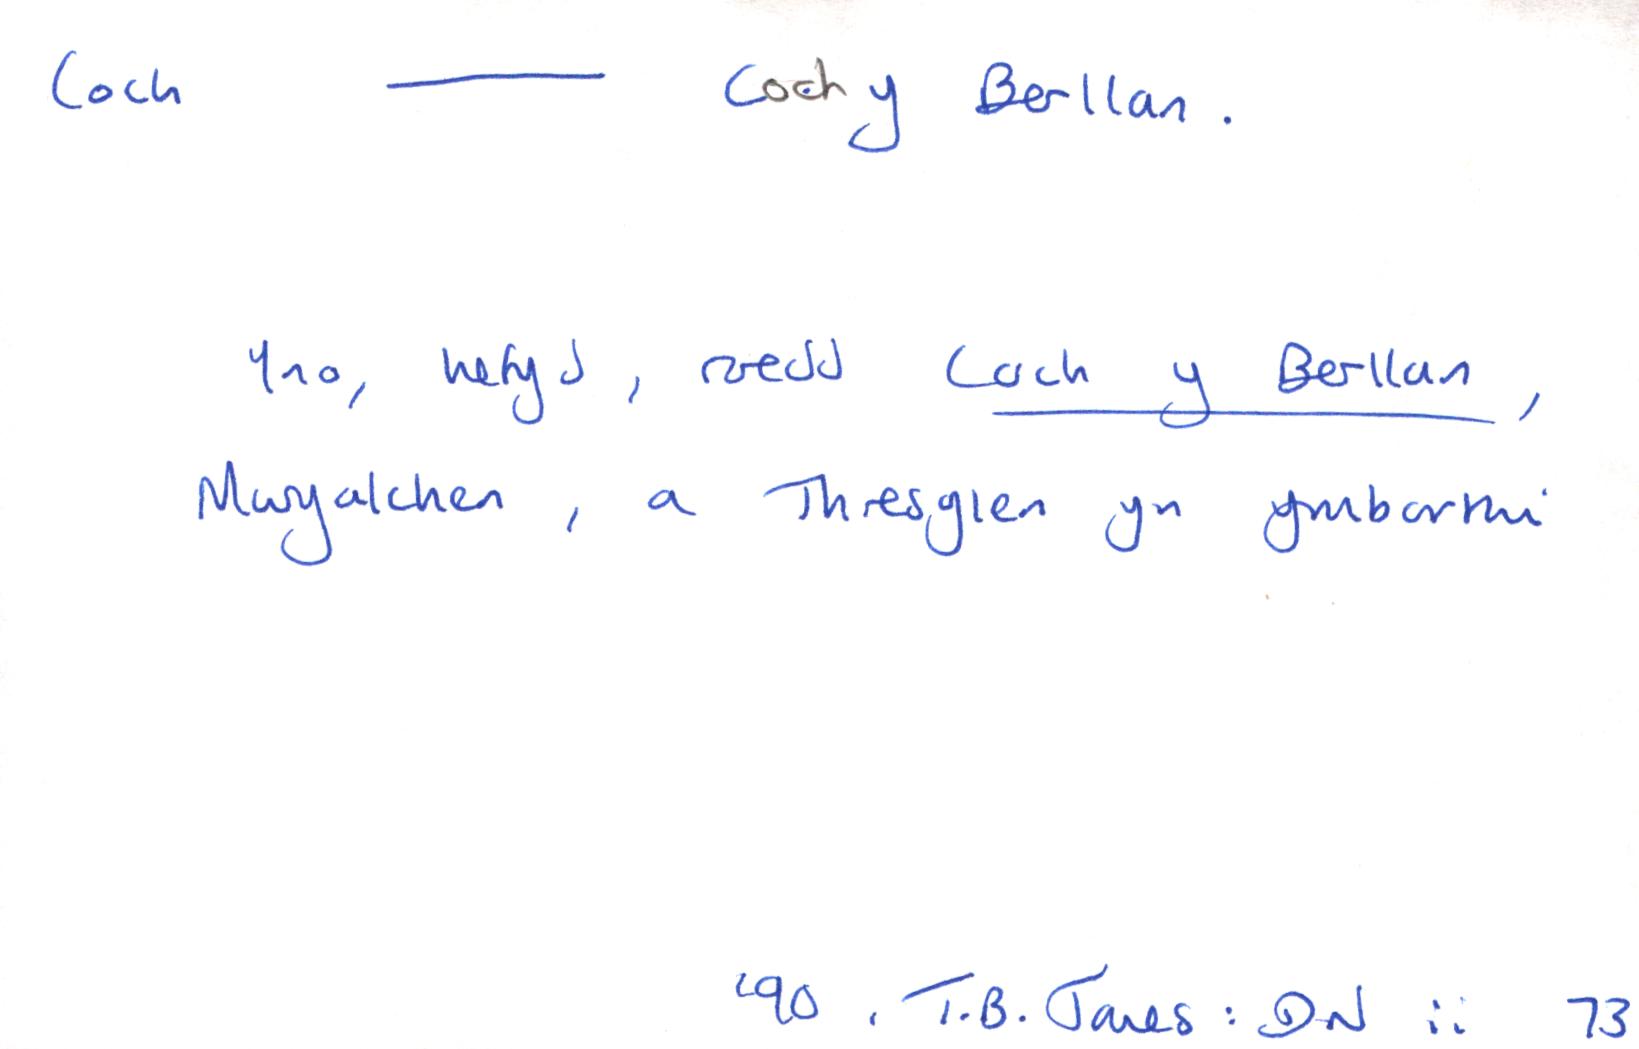 Coch — Coch y Berllan.
Yno, hefyd, roedd Coch y Berllan,
Mwyalchen, a Thresglen yn ymborthi
'90. T.B. Jones: DN ii 73